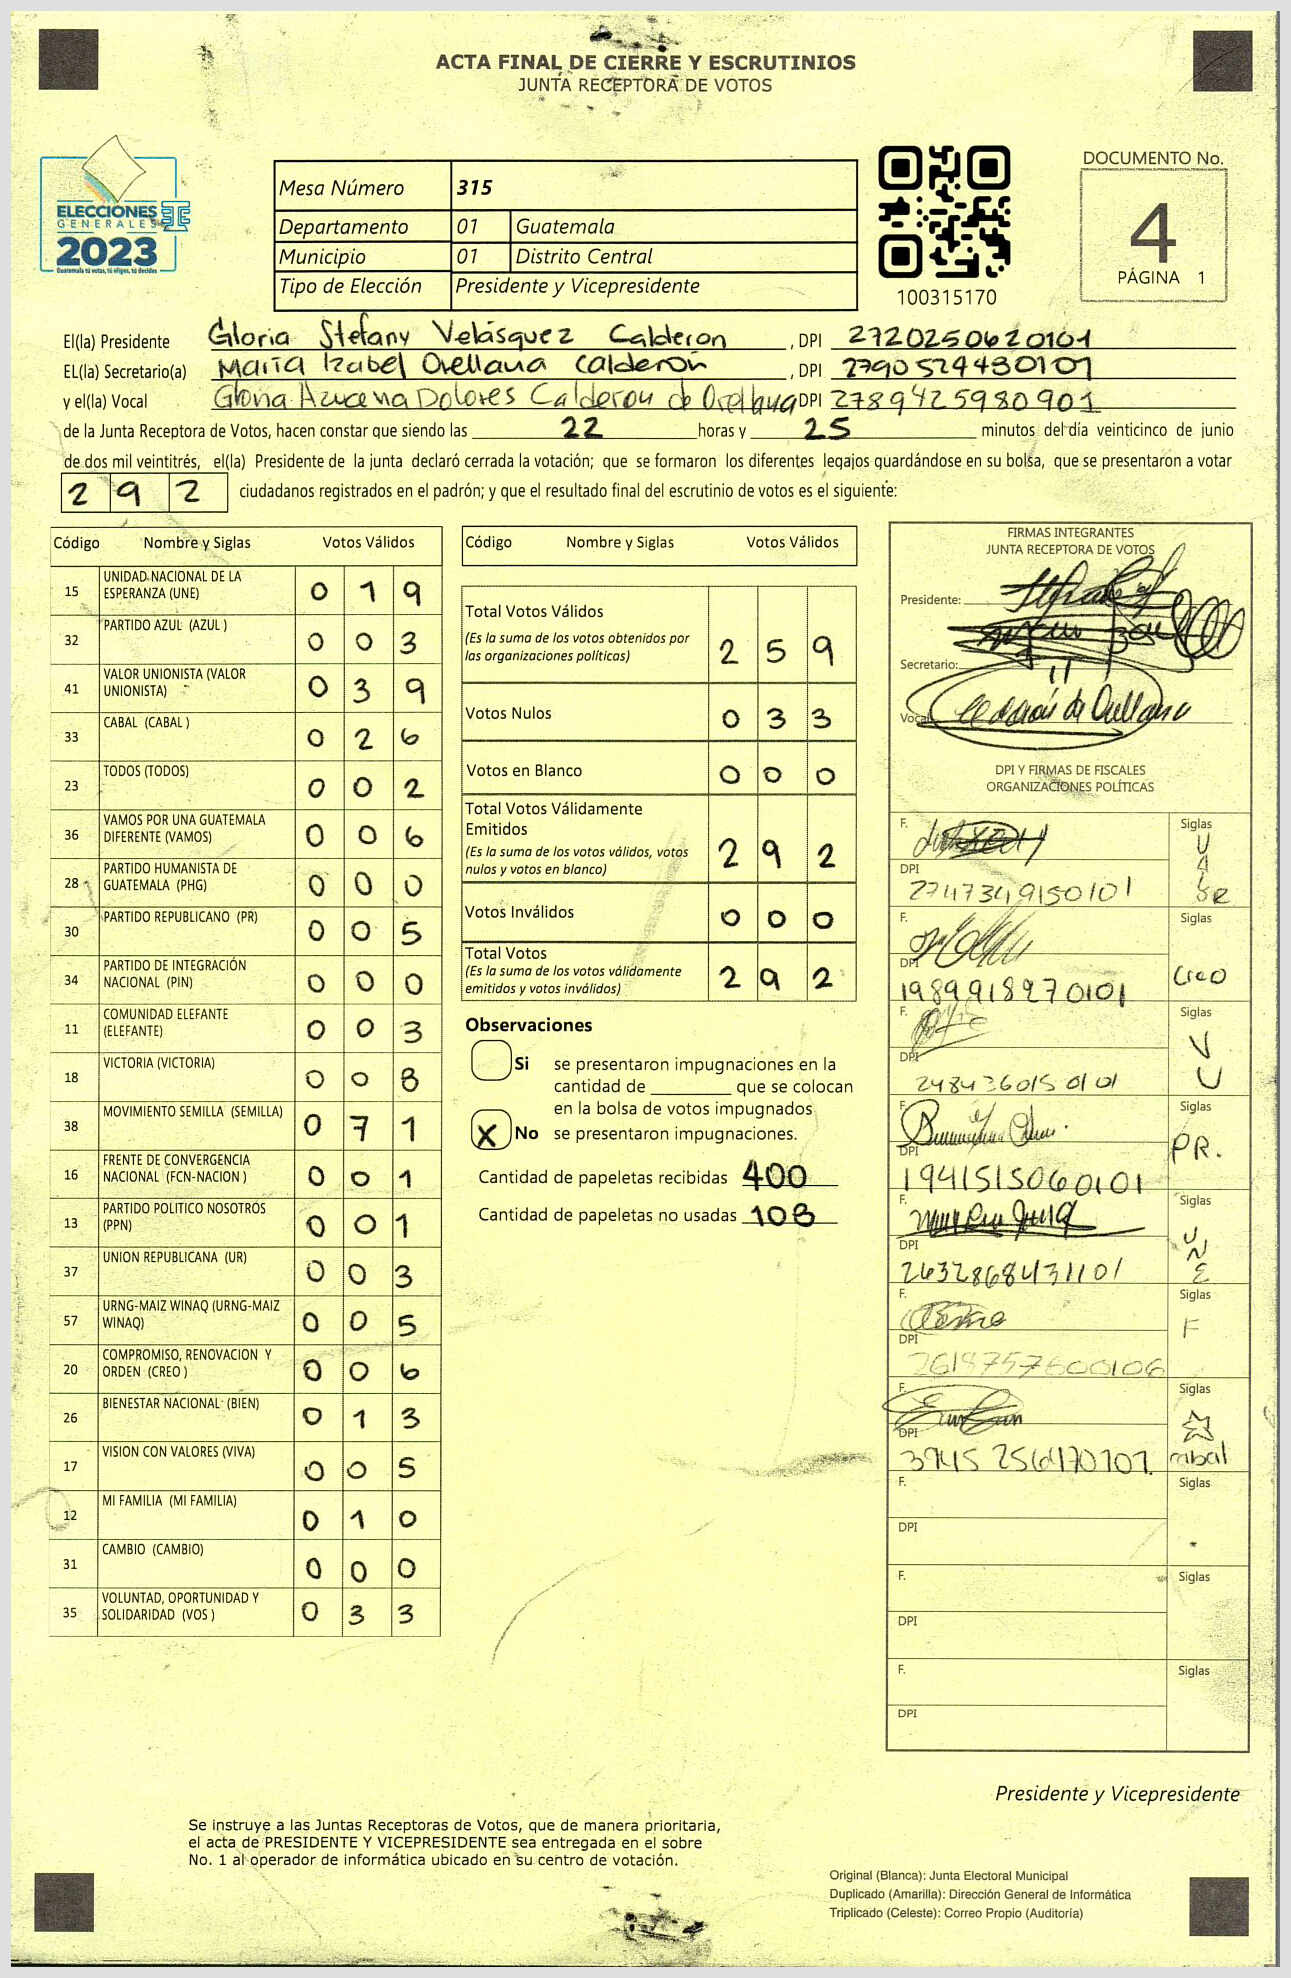 ACTA FINAL DE CIERRE Y ESCRUTINIOS
JUNTA RECEPTORA DE VOTOS
ELECCIONES
GENERALES
2023
Guatemala tú votas, tú eliges, tú decides
Mesa Número 315
Departamento 01 Guatemala
Municipio 01 Distrito Central
Tipo de Elección Presidente y Vicepresidente
100315170
DOCUMENTO No.
4
PÁGINA 1
El(la) Presidente Gloria Stefany Velásquez Calderon, DPI 2720250620101
EL(la) Secretario(a) María Izabel Orellana Calderón, DPI 2790524430101
y el(la) Vocal Gloria Azucena Dolores Calderon de Orellana DPI 2789425980901
de la Junta Receptora de Votos, hacen constar que siendo las 22 horas y 25 minutos del día veinticinco de junio
de dos mil veintitrés, el(la) Presidente de la junta declaró cerrada la votación; que se formaron los diferentes legajos guardándose en su bolsa, que se presentaron a votar
292 ciudadanos registrados en el padrón; y que el resultado final del escrutinio de votos es el siguiente:
Código Nombre y Siglas Votos Válidos
15 UNIDAD NACIONAL DE LA ESPERANZA (UNE) 0 1 9
32 PARTIDO AZUL (AZUL ) 0 0 3
41 VALOR UNIONISTA (VALOR UNIONISTA) 0 3 9
33 CABAL (CABAL ) 0 2 6
23 TODOS (TODOS) 0 0 2
36 VAMOS POR UNA GUATEMALA DIFERENTE (VAMOS) 0 0 6
28 PARTIDO HUMANISTA DE GUATEMALA (PHG) 0 0 0
30 PARTIDO REPUBLICANO (PR) 0 0 5
34 PARTIDO DE INTEGRACIÓN NACIONAL (PIN) 0 0 0
11 COMUNIDAD ELEFANTE (ELEFANTE) 0 0 3
18 VICTORIA (VICTORIA) 0 0 8
38 MOVIMIENTO SEMILLA (SEMILLA) 0 7 1
16 FRENTE DE CONVERGENCIA NACIONAL (FCN-NACION ) 0 0 1
13 PARTIDO POLITICO NOSOTROS (PPN) 0 0 1
37 UNION REPUBLICANA (UR) 0 0 3
57 URNG-MAIZ WINAQ (URNG-MAIZ WINAQ) 0 0 5
20 COMPROMISO, RENOVACION Y ORDEN (CREO ) 0 0 6
26 BIENESTAR NACIONAL (BIEN) 0 1 3
17 VISION CON VALORES (VIVA) 0 0 5
12 MI FAMILIA (MI FAMILIA) 0 1 0
31 CAMBIO (CAMBIO) 0 0 0
35 VOLUNTAD, OPORTUNIDAD Y SOLIDARIDAD (VOS ) 0 3 3
Código Nombre y Siglas Votos Válidos
Total Votos Válidos 2 5 9
(Es la suma de los votos obtenidos por
las organizaciones políticas)
Votos Nulos 0 3 3
Votos en Blanco 0 0 0
Total Votos Válidamente
Emitidos 2 9 2
(Es la suma de los votos válidos, votos
nulos y votos en blanco)
Votos Inválidos 0 0 0
Total Votos 2 9 2
(Es la suma de los votos válidamente
emitidos y votos inválidos)
Observaciones
Si se presentaron impugnaciones en la
cantidad de ________ que se colocan
en la bolsa de votos impugnados
X No se presentaron impugnaciones.
Cantidad de papeletas recibidas 400
Cantidad de papeletas no usadas 108
FIRMAS INTEGRANTES
JUNTA RECEPTORA DE VOTOS
Presidente:
Secretario:
Vocal
DPI Y FIRMAS DE FISCALES
ORGANIZACIONES POLÍTICAS
F. Siglas
VALOR
DPI
2747349150101
F. Siglas
Creo
DPI
1989918270101
F. Siglas
VU
DPI
2484360150101
F. Siglas
PR.
DPI
1941515060101
F. Siglas
UNE
DPI
2632868431101
F. Siglas
F
DPI
2618757600106
F. Siglas
cabal
DPI
F. Siglas
DPI
F. Siglas
DPI
F. Siglas
DPI
Presidente y Vicepresidente
Se instruye a las Juntas Receptoras de Votos, que de manera prioritaria,
el acta de PRESIDENTE Y VICEPRESIDENTE sea entregada en el sobre
No. 1 al operador de informática ubicado en su centro de votación.
Original (Blanca): Junta Electoral Municipal
Duplicado (Amarilla): Dirección General de Informática
Triplicado (Celeste): Correo Propio (Auditoría)